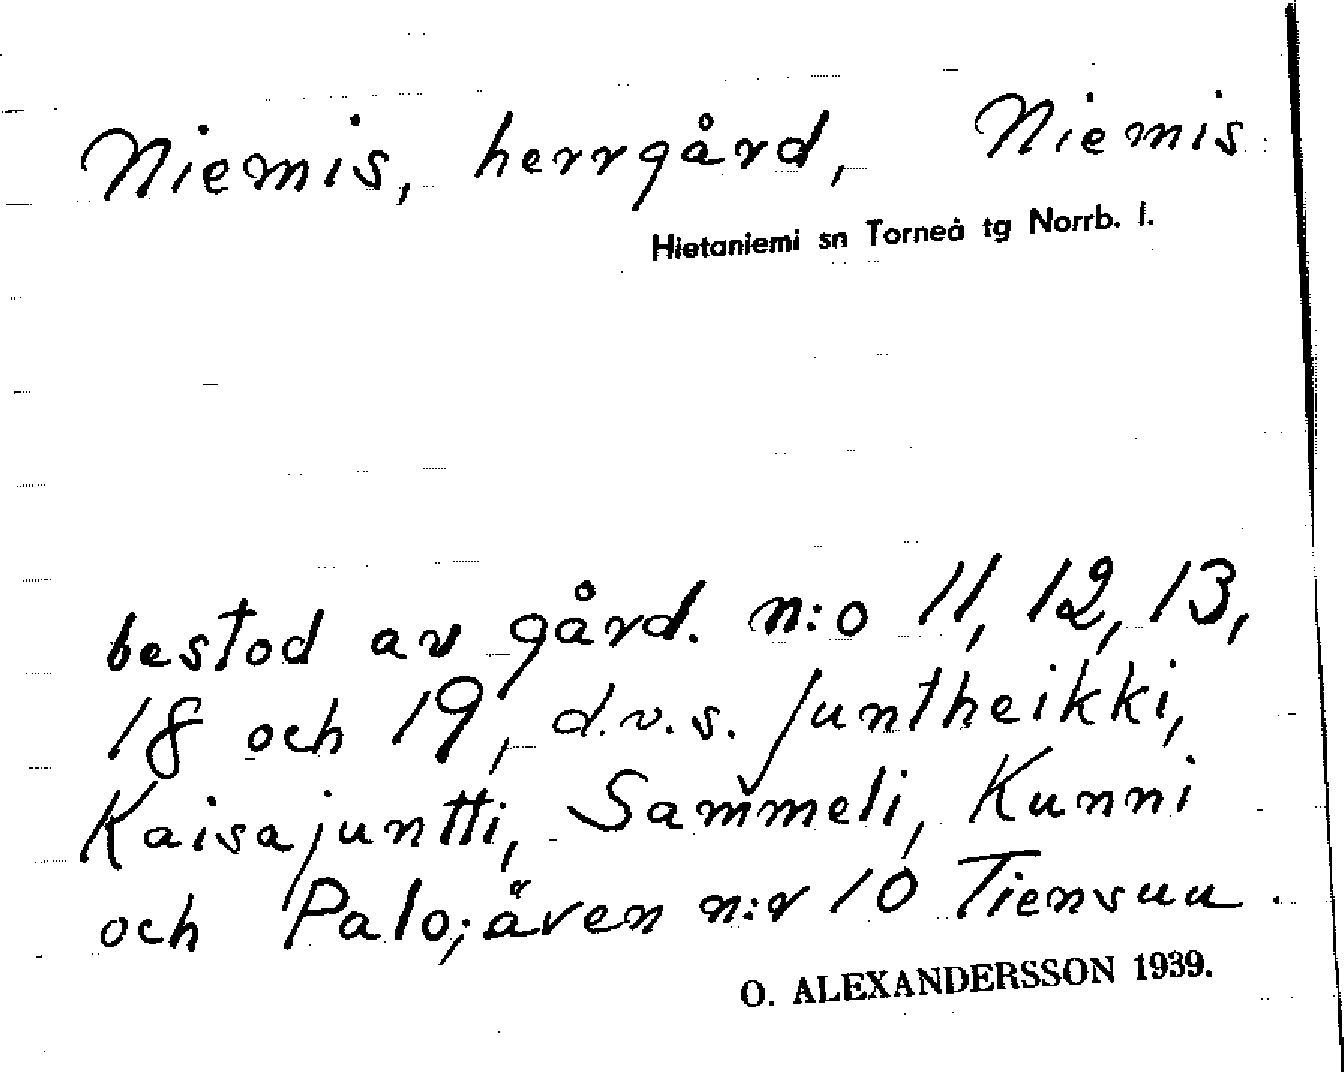 Niemis, herrgård, Niemis
Hietaniemi sn Torneå tg Norrb. l.
bestod av gård. n:o 11, 12, 13,
18 och 19, d.v.s. Juntheikki,
Kaisajuntti, Sammeli, Kunni
och Palo; även n:r 10 Tiensuu.
O. ALEXANDERSSON 1939.